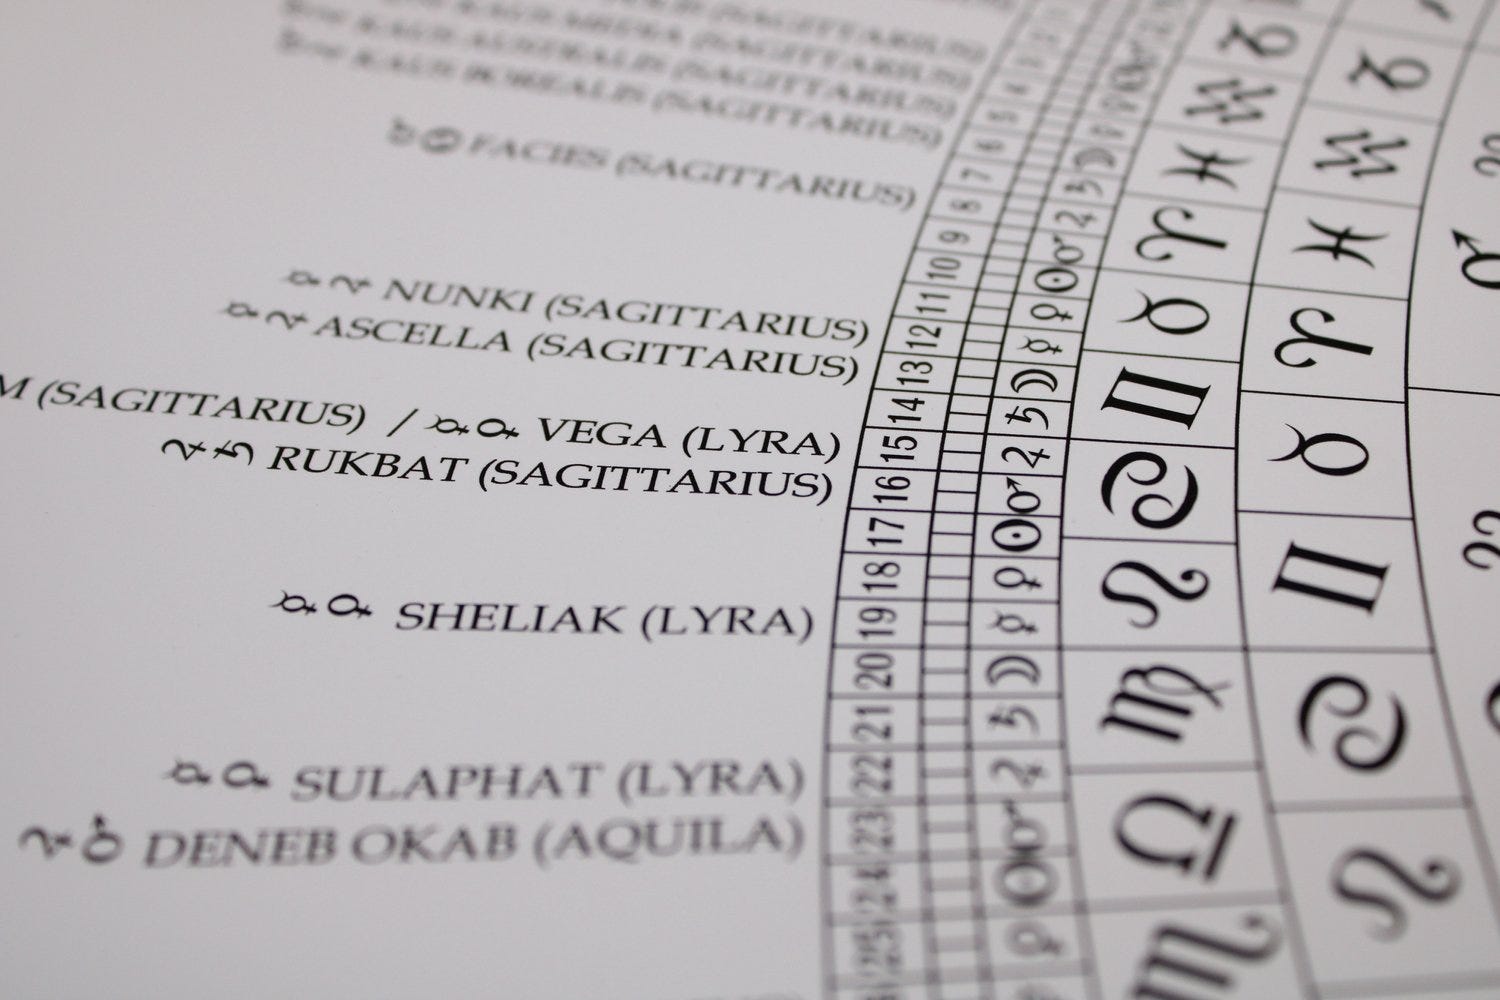 (SAGITTARIUS)
KAUS MEDIA (SAGITTARIUS)
KAUS AUSTRALIS (SAGITTARIUS)
KAUS BOREALIS (SAGITTARIUS)
♂☉ FACIES (SAGITTARIUS)
☿♃ NUNKI (SAGITTARIUS)
☿♃ ASCELLA (SAGITTARIUS)
M (SAGITTARIUS) / ☿♀ VEGA (LYRA)
♃♄ RUKBAT (SAGITTARIUS)
☿♀ SHELIAK (LYRA)
☿♀ SULAPHAT (LYRA)
♃♂ DENEB OKAB (AQUILA)
4
5
6
7
8
9
10
11
12
13
14
15
16
17
18
19
20
21
22
23
24
25
☽
♄
♃
♂
☉
♀
☿
☽
♄
♃
♂
☉
♀
☿
☽
♄
♃
♂
☉
♀
♑
♒
♓
♈
♉
♊
♋
♌
♍
♎
♏
♑
♒
♓
♈
♉
♊
♋
♌
♂